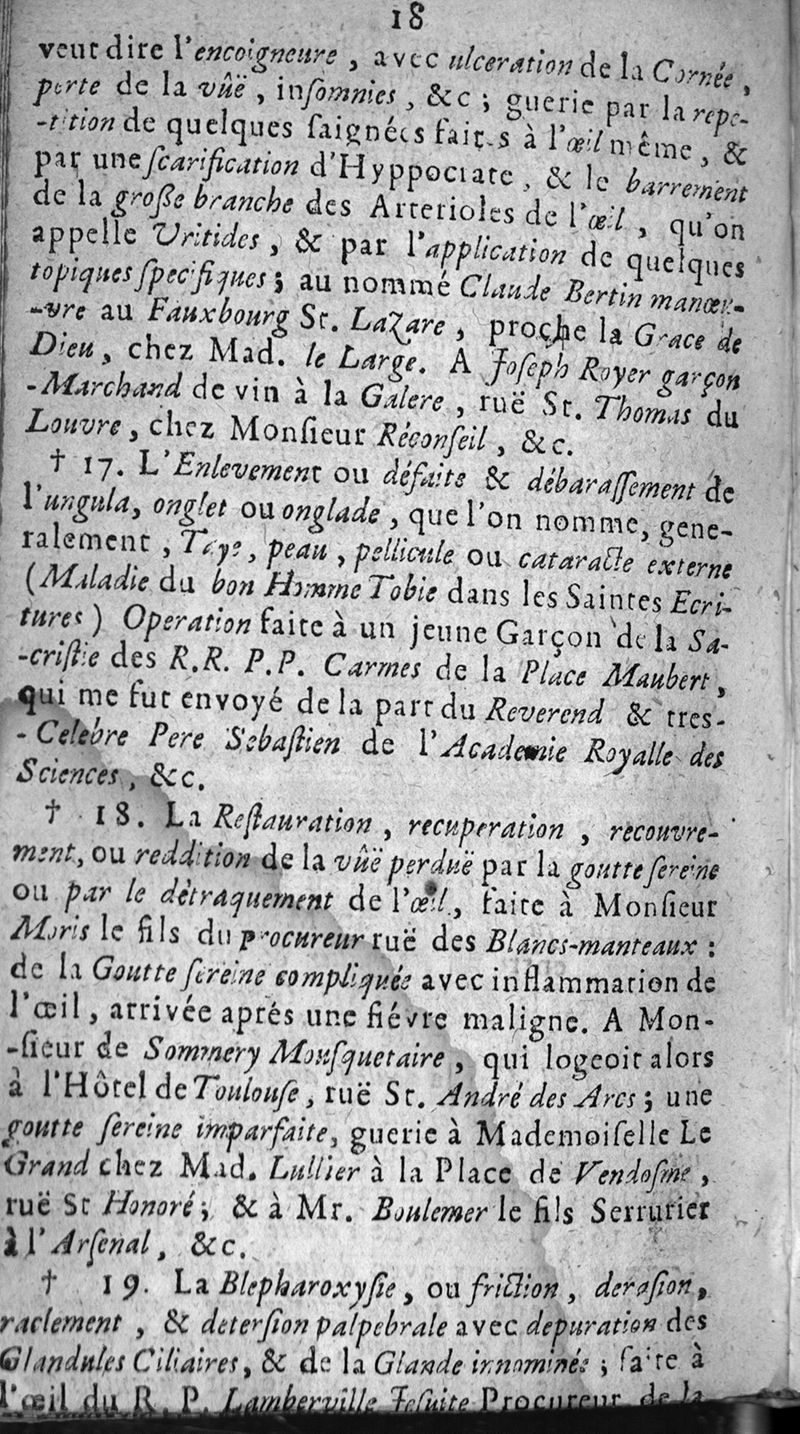 18
veut dire l'encoigneure, avec ulceration de la Cornée,
perte de la vûë, inſomnies, &c ; guerie par la repe-
-tition de quelques ſaignées faites à l'œil même, &
par une ſcarification d'Hyppocrate, & le barrement
de la groſſe branche des Arterioles de l'œil, qu'on
appelle Uritides, & par l'application de quelques
topiques ſpecifiques ; au nommé Claude Bertin manœu-
-vre au Fauxbourg St. Lazare, proche la Grace de
Dieu, chez Mad. le Large. A Joſeph Royer garçon
-Marchand de vin à la Galere, ruë St. Thomas du
Louvre, chez Monſieur Réconſeil, &c.
† 17. L'Enlevement ou défaite & débaraſſement de
l'ungula, onglet ou onglade, que l'on nomme, gene-
ralement, Taye, peau, pellicule ou cataracte externe
(Maladie du bon Homme Tobie dans les Saintes Ecri-
tures) Operation faite à un jeune Garçon de la Sa-
-criſtie des R.R. P.P. Carmes de la Place Maubert,
qui me fut envoyé de la part du Reverend & tres-
-Celebre Pere Sebaſtien de l'Academie Royalle des
Sciences, &c.
† 18. La Reſtauration, recuperation, recouvre-
ment, ou reddition de la vûë perduë par la goutte ſereine
ou par le détraquement de l'œil, faite à Monſieur
Moris le fils du procureur ruë des Blancs-manteaux :
de la Goutte ſereine compliquée avec inflammation de
l'œil, arrivée aprés une fiévre maligne. A Mon-
-ſieur de Sommery Mouſquetaire, qui logeoit alors
à l'Hôtel de Toulouſe, ruë St. André des Arcs ; une
goutte ſereine imparfaite, guerie à Mademoiſelle Le
Grand chez Mad. Lullier à la Place de Vendoſme,
ruë St Honoré ; & à Mr. Boulemer le fils Serrurier
à l'Arſenal, &c.
† 19. La Blepharoxyſie, ou friction, deraſion,
raclement, & deterſion palpebrale avec depuration des
Glandules Ciliaires, & de la Glande innominée ; faite à
l'œil du R. P. Lamberville Jeſuite Procureur de la